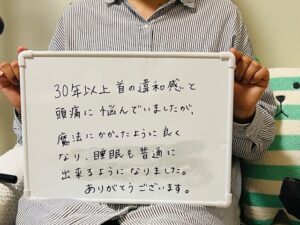 30年以上 首の違和感と
頭痛に悩んでいましたが、
魔法にかかったように良く
なり、睡眠も普通に
出来るようになりました。
ありがとうございます。